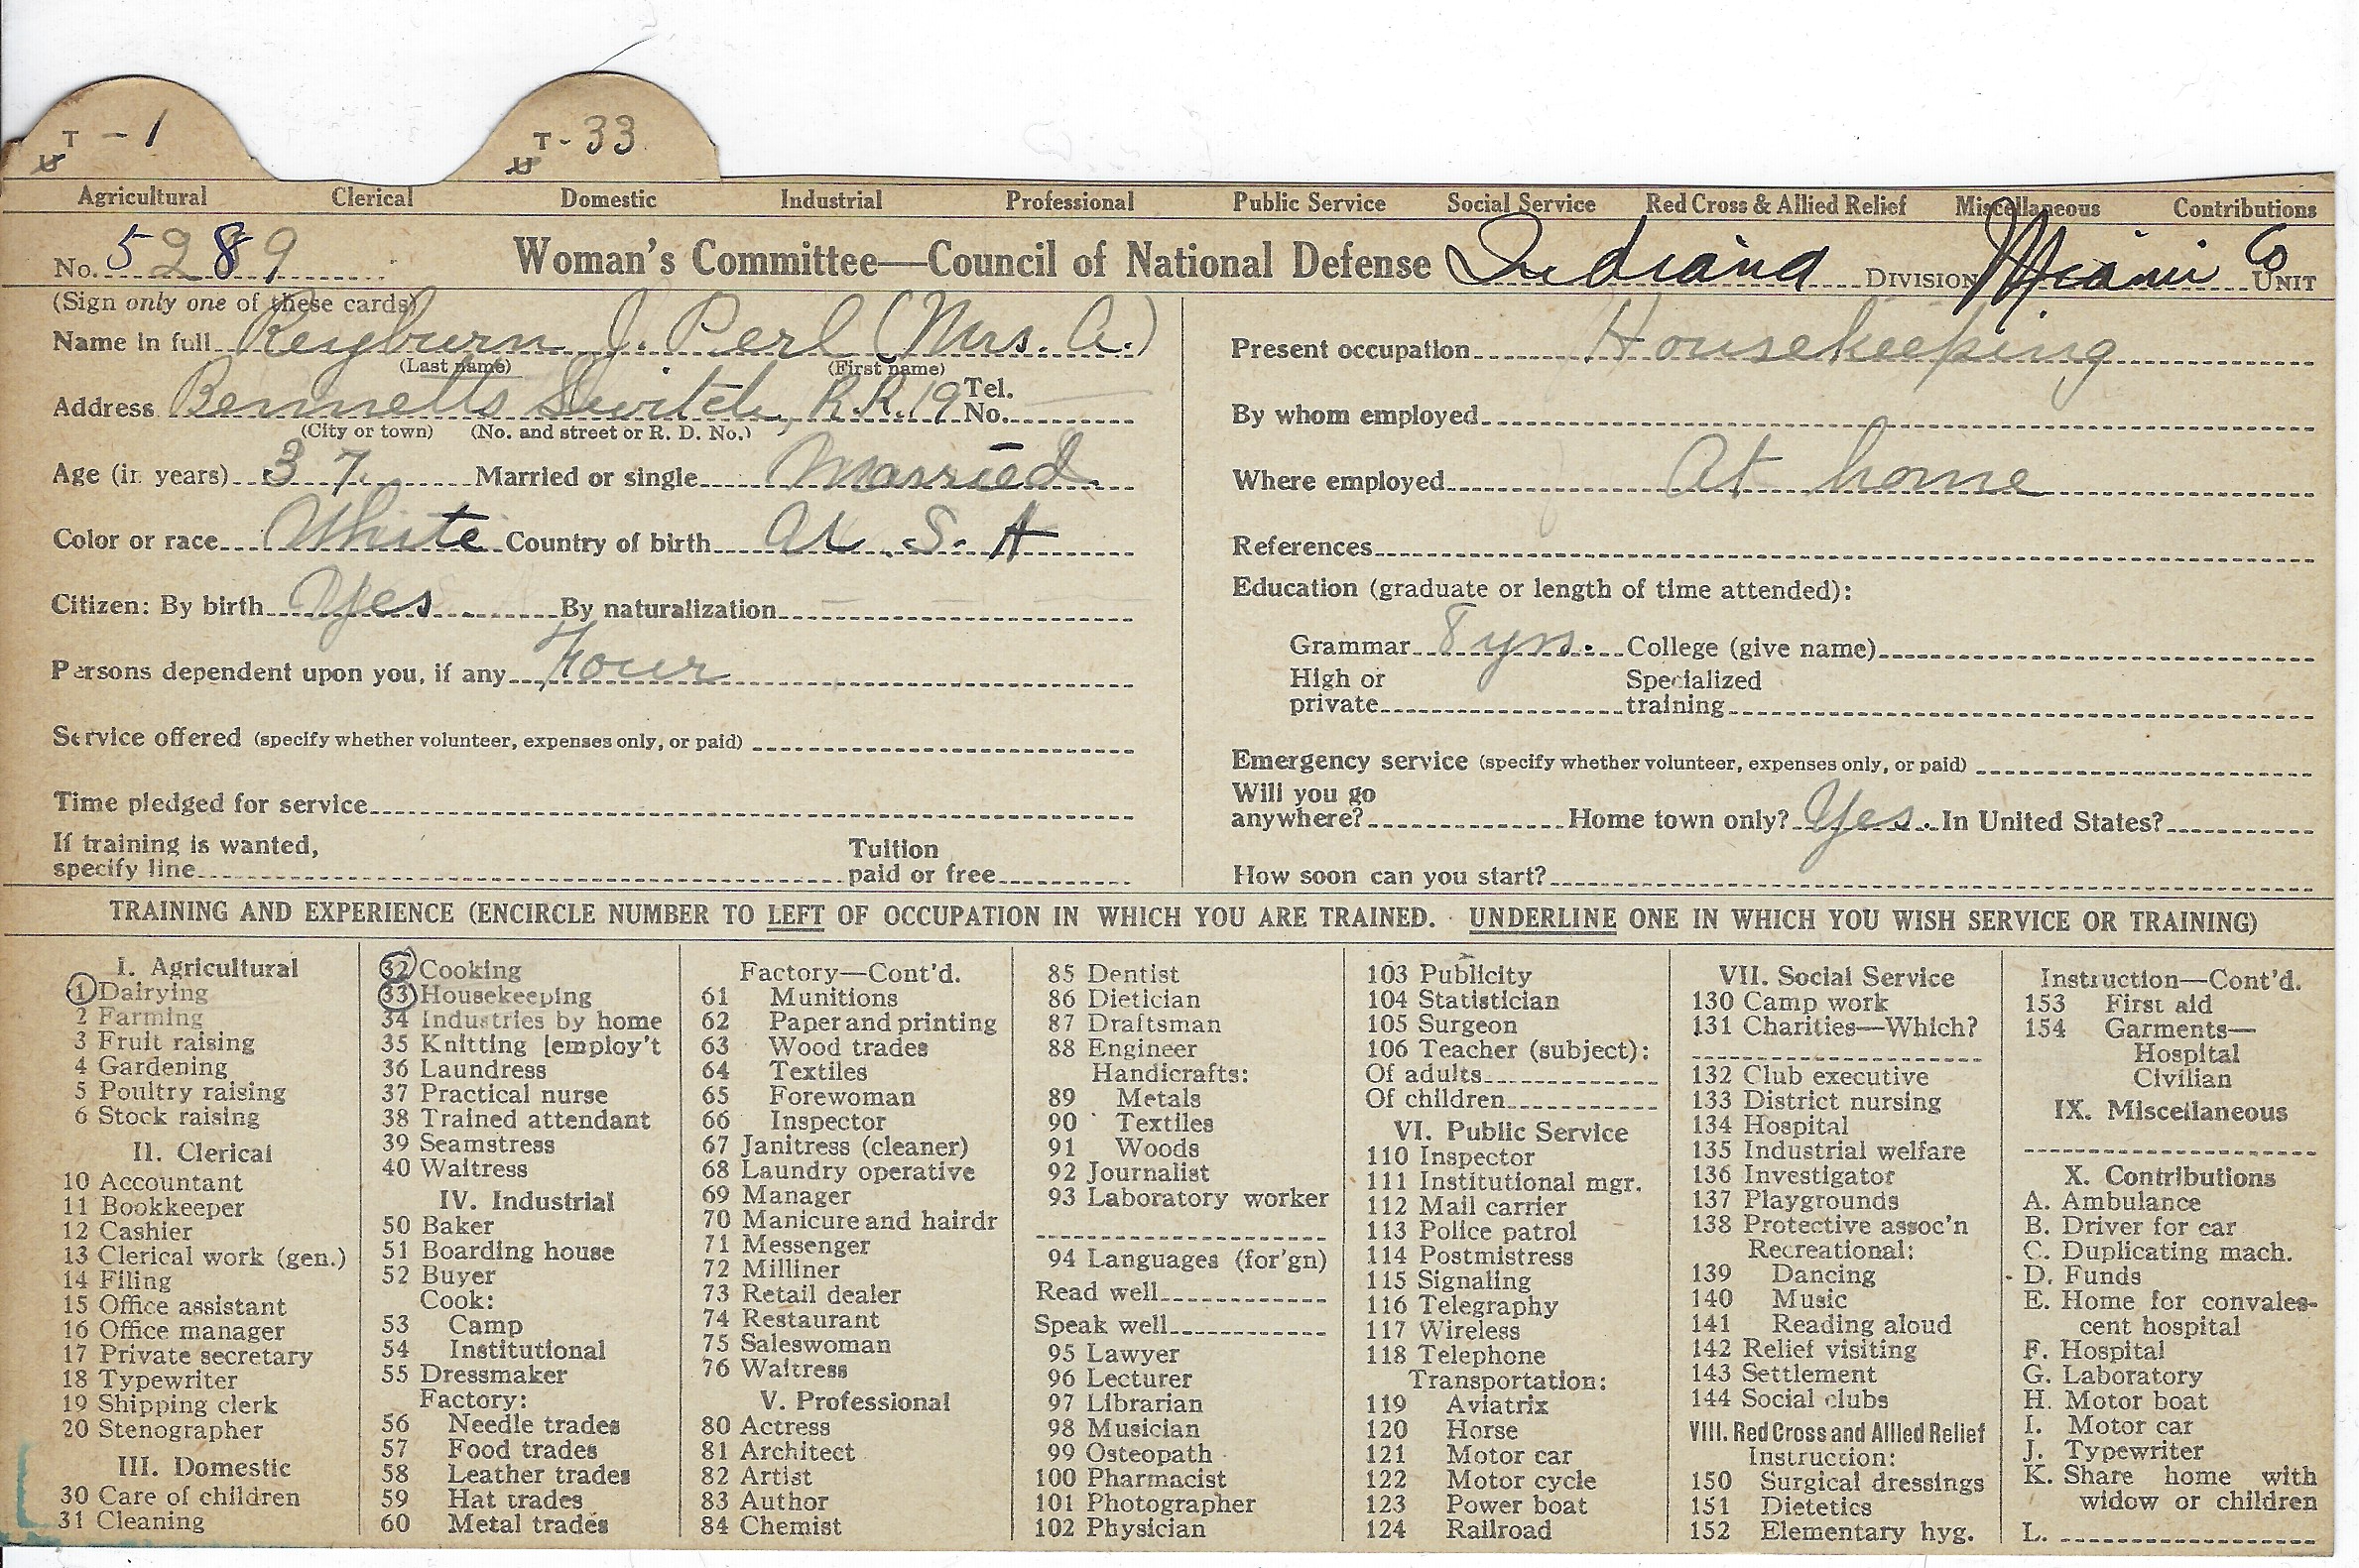 T - 1
U
T - 33
U
Agricultural Clerical Domestic Industrial Professional Public Service Social Service Red Cross & Allied Relief Miscellaneous Contributions
No. 5289 Woman's Committee—Council of National Defense Indiana DIVISION Miami Co UNIT
(Sign only one of these cards)
Name in full Reyburn J. Perl (Mrs. A.)
(Last name) (First name)
Address Bennetts Switch, R.R. 19 Tel. No.
(City or town) (No. and street or R. D. No.)
Age (in years) 37 Married or single Married
Color or race White Country of birth U. S. A
Citizen: By birth Yes By naturalization
Persons dependent upon you, if any Four
Service offered (specify whether volunteer, expenses only, or paid)
Time pledged for service
If training is wanted,
specify line Tuition paid or free
Present occupation Housekeeping
By whom employed
Where employed At home
References
Education (graduate or length of time attended):
Grammar 8 yrs. College (give name)
High or private Specialized training
Emergency service (specify whether volunteer, expenses only, or paid)
Will you go
anywhere? Home town only? Yes. In United States?
How soon can you start?
TRAINING AND EXPERIENCE (ENCIRCLE NUMBER TO LEFT OF OCCUPATION IN WHICH YOU ARE TRAINED. UNDERLINE ONE IN WHICH YOU WISH SERVICE OR TRAINING)
I. Agricultural
1 Dairying
2 Farming
3 Fruit raising
4 Gardening
5 Poultry raising
6 Stock raising
II. Clerical
10 Accountant
11 Bookkeeper
12 Cashier
13 Clerical work (gen.)
14 Filing
15 Office assistant
16 Office manager
17 Private secretary
18 Typewriter
19 Shipping clerk
20 Stenographer
III. Domestic
30 Care of children
31 Cleaning
32 Cooking
33 Housekeeping
34 Industries by home
35 Knitting [employ't
36 Laundress
37 Practical nurse
38 Trained attendant
39 Seamstress
40 Waitress
IV. Industrial
50 Baker
51 Boarding house
52 Buyer
Cook:
53 Camp
54 Institutional
55 Dressmaker
Factory:
56 Needle trades
57 Food trades
58 Leather trades
59 Hat trades
60 Metal trades
Factory—Cont'd.
61 Munitions
62 Paper and printing
63 Wood trades
64 Textiles
65 Forewoman
66 Inspector
67 Janitress (cleaner)
68 Laundry operative
69 Manager
70 Manicure and hairdr
71 Messenger
72 Milliner
73 Retail dealer
74 Restaurant
75 Saleswoman
76 Waitress
V. Professional
80 Actress
81 Architect
82 Artist
83 Author
84 Chemist
85 Dentist
86 Dietician
87 Draftsman
88 Engineer
Handicrafts:
89 Metals
90 Textiles
91 Woods
92 Journalist
93 Laboratory worker
94 Languages (for'gn)
Read well
Speak well
95 Lawyer
96 Lecturer
97 Librarian
98 Musician
99 Osteopath
100 Pharmacist
101 Photographer
102 Physician
103 Publicity
104 Statistician
105 Surgeon
106 Teacher (subject):
Of adults
Of children
VI. Public Service
110 Inspector
111 Institutional mgr.
112 Mail carrier
113 Police patrol
114 Postmistress
115 Signaling
116 Telegraphy
117 Wireless
118 Telephone
Transportation:
119 Aviatrix
120 Horse
121 Motor car
122 Motor cycle
123 Power boat
124 Railroad
VII. Social Service
130 Camp work
131 Charities—Which?
132 Club executive
133 District nursing
134 Hospital
135 Industrial welfare
136 Investigator
137 Playgrounds
138 Protective assoc'n
Recreational:
139 Dancing
140 Music
141 Reading aloud
142 Relief visiting
143 Settlement
144 Social clubs
VIII. Red Cross and Allied Relief
Instruction:
150 Surgical dressings
151 Dietetics
152 Elementary hyg.
Instruction—Cont'd.
153 First aid
154 Garments—
Hospital
Civilian
IX. Miscellaneous
X. Contributions
A. Ambulance
B. Driver for car
C. Duplicating mach.
D. Funds
E. Home for convales-
cent hospital
F. Hospital
G. Laboratory
H. Motor boat
I. Motor car
J. Typewriter
K. Share home with
widow or children
L.